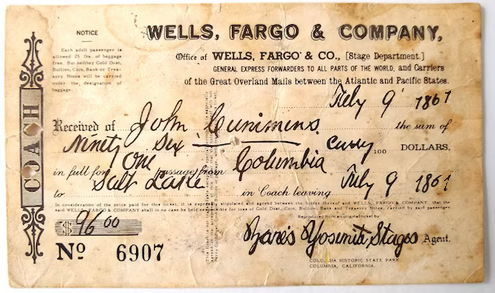 NOTICE
Each adult passenger is
allowed 25 lbs. of baggage
free. But neither Gold Dust,
Bullion, Coin, Bank or Treasury
Notes will be carried
under the designation of
baggage.
COACH
WELLS, FARGO & COMPANY,
Office of WELLS, FARGO & CO., [Stage Department.]
GENERAL EXPRESS FORWARDERS TO ALL PARTS OF THE WORLD, and Carriers
of the Great Overland Mails between the Atlantic and Pacific States.
July 9 1867
Received of John Cunimens the sum of
Ninety Six /100 DOLLARS,
in full for One passage from Columbia
to Salt Lake in Coach leaving July 9 1867
In consideration of the price paid for this ticket, it is expressly stipulated and agreed between the holder thereof and WELLS, FARGO & COMPANY, that the
said WELLS, FARGO & COMPANY shall in no case be held responsible for loss of Gold Dust, Coin, Bullion, Bank or Treasury Notes, carried by such passenger.
$ 96.00
Nº 6907
Yosemite Stages Agent.
COLUMBIA HISTORIC STATE PARK
COLUMBIA, CALIFORNIA.